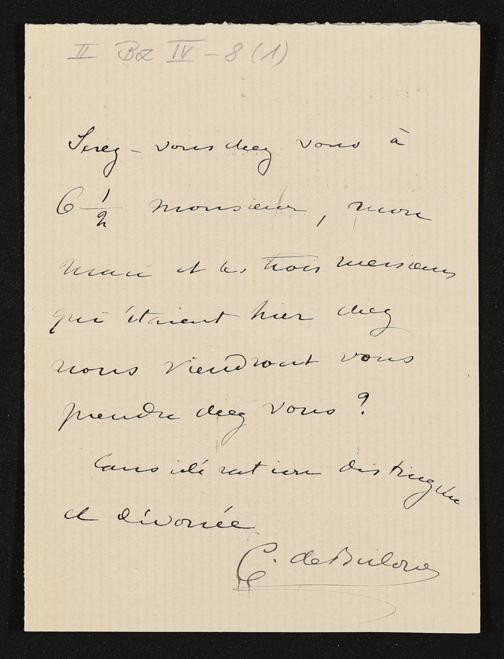 II Bd IV - 8 (1)
Serez-vous chez vous à
6 1/2 monsieur, mon
mari et les trois messieurs
qui étaient hier chez
nous viendront vous
prendre chez vous ?
Considération distinguée
et dévouée
C. de